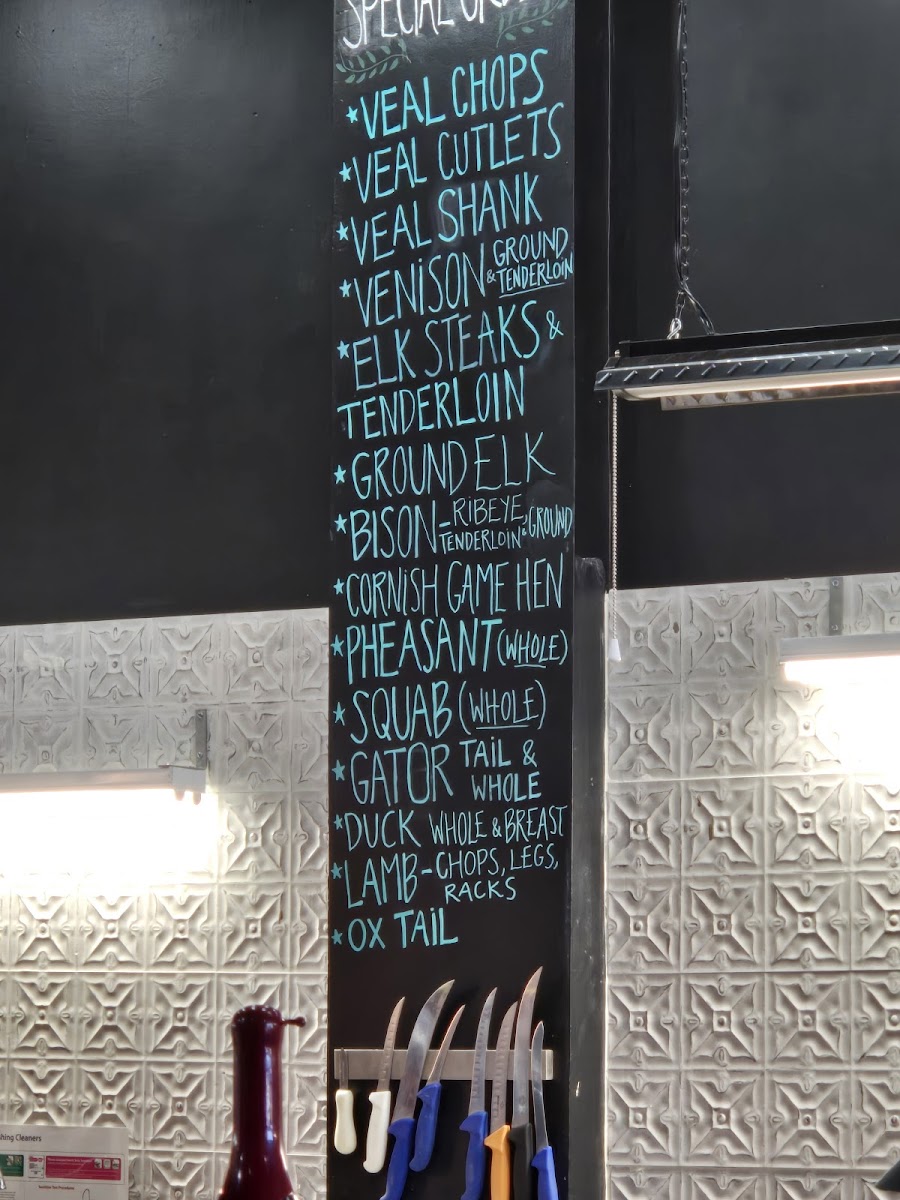 SPECIAL
*VEAL CHOPS
*VEAL CUTLETS
*VEAL SHANK
*VENISON & GROUND TENDERLOIN
*ELK STEAKS &
TENDERLOIN
*GROUND ELK
*BISON - RIBEYE, TENDERLOIN & GROUND
*CORNISH GAME HEN
*PHEASANT (WHOLE)
*SQUAB (WHOLE)
*GATOR TAIL & WHOLE
*DUCK WHOLE & BREAST
*LAMB - CHOPS, LEGS, RACKS
*OX TAIL
Cleaners